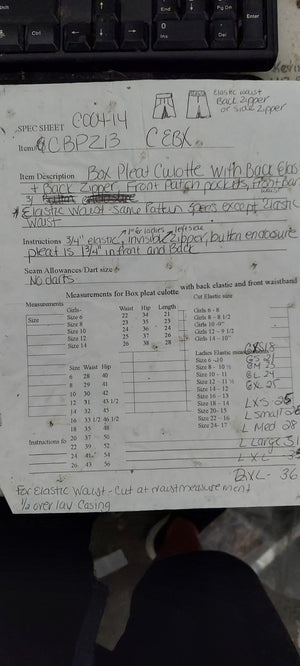 End
Pg Dn
Enter
Ctrl
0
Ins
Del
Elastic waist
Back Zipper
or side Zipper
SPEC SHEET
CBPZ13 CEBX
Item Description Box Pleat Culotte with Back Elas
+ Back Zipper, Front patch pockets, front
* Elastic Waist - same Pattern specs except Elastic
waist
Instructions 3/4" elastic, invisible zipper, button enclosure
pleat is 1 3/4" in front and Back
Seam Allowances/Dart size
No darts
Measurements for Box pleat culotte with back elastic and front waistband
Measurements
Size
Girls- Waist Hip Length
Size 6 22 34 21
Size 8 23 35 23
Size 10 24 36 24
Size 12 25 37 26
Size 14 26 38 28
Cut Elastic size
Girls 6 - 8
Girls 8 - 8 1/2
Girls 10 - 9"
Girls 12 - 9 1/2
Girls 14 - 10"
Size Waist Hip
6 28 40
8 29 41
10 30 42
12 31 43 1/2
14 32 45
16 33 1/2 46 1/2
18 35 48
20 37 50
22 39 52
24 41 54
26 43 56
Instructions fo
Ladies Elastic
Size 6 - 10
Size 8 - 10 1/2
Size 10 - 11
Size 12 - 11 1/2
Size 14 - 12
Size 16 - 13
Size 18 - 14
Size 20 - 15
Size 22 - 16
Size 24 - 17
GS 21
GM 23
GL 24
GXL 25
L XS 25
L Small 26
L Med 28
L Large 31
L XL
36
For Elastic Waist - Cut at waist measurement
1/2 overlay Casing